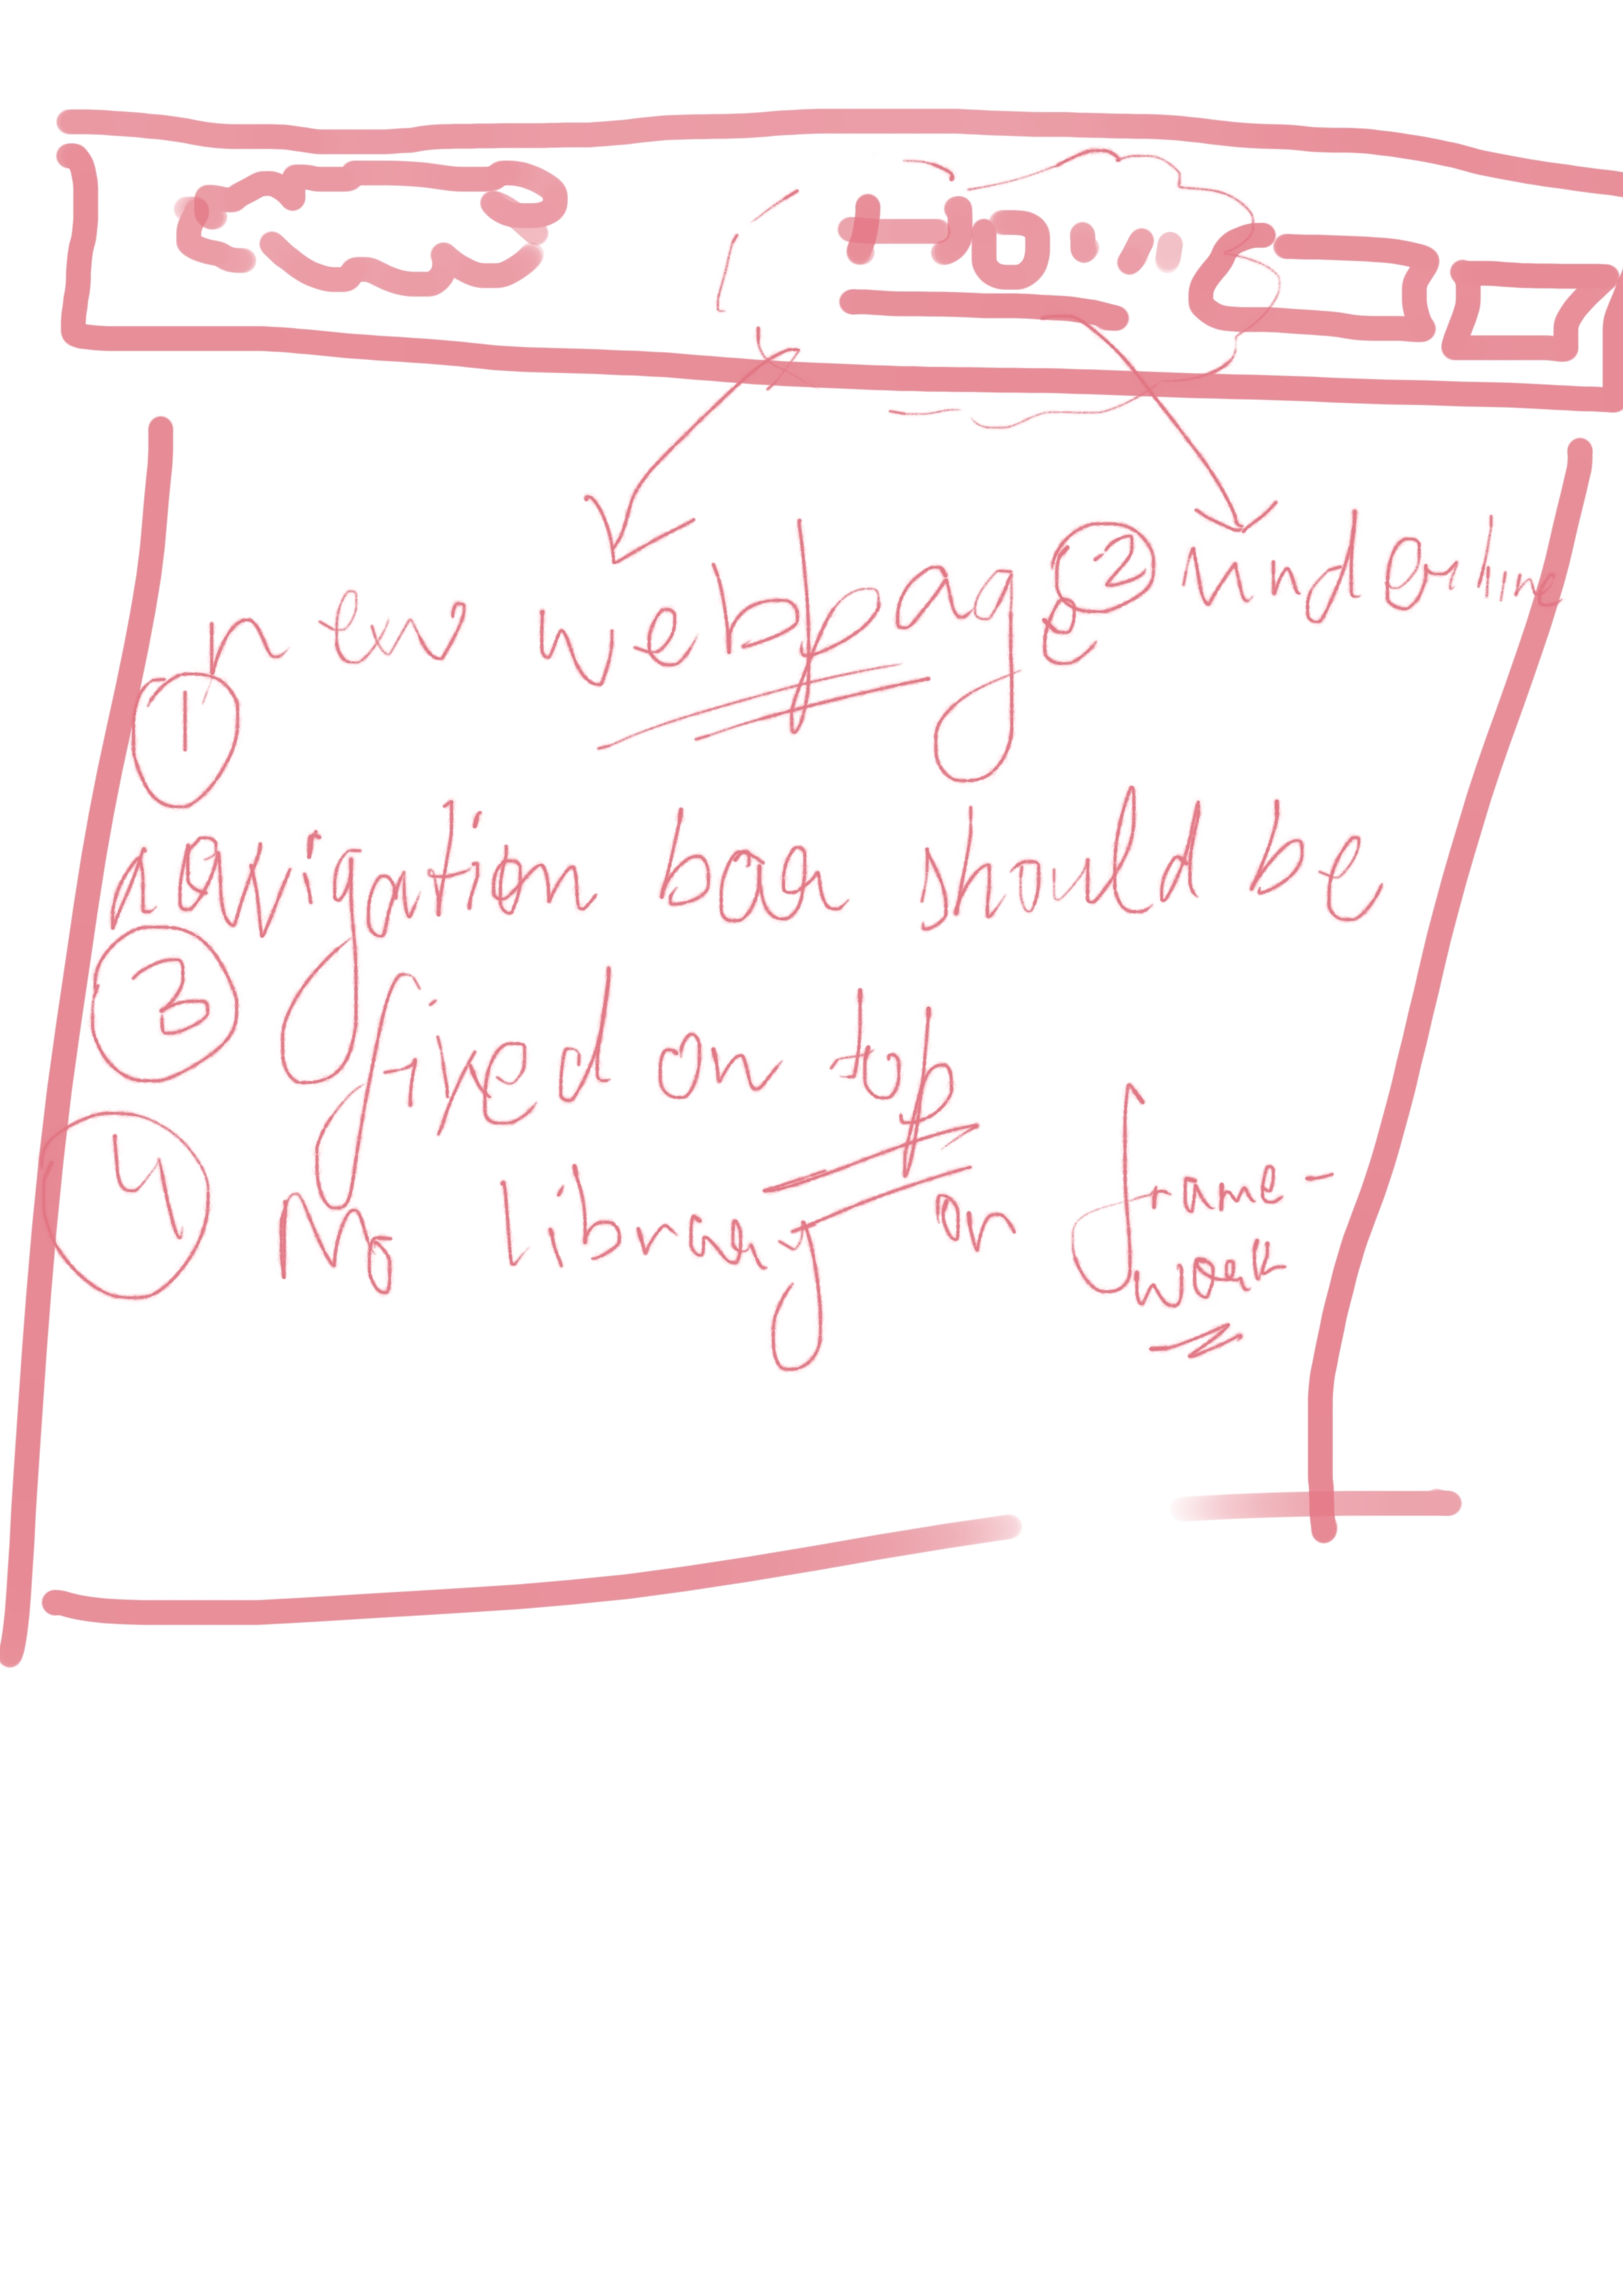 Home
new webpage
② underline
①
navigation bar should be
③ fixed on top
④ No library or frame-
work